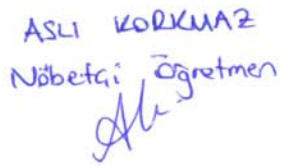 ASLI KORKMAZ
Nöbetçi Öğretmen